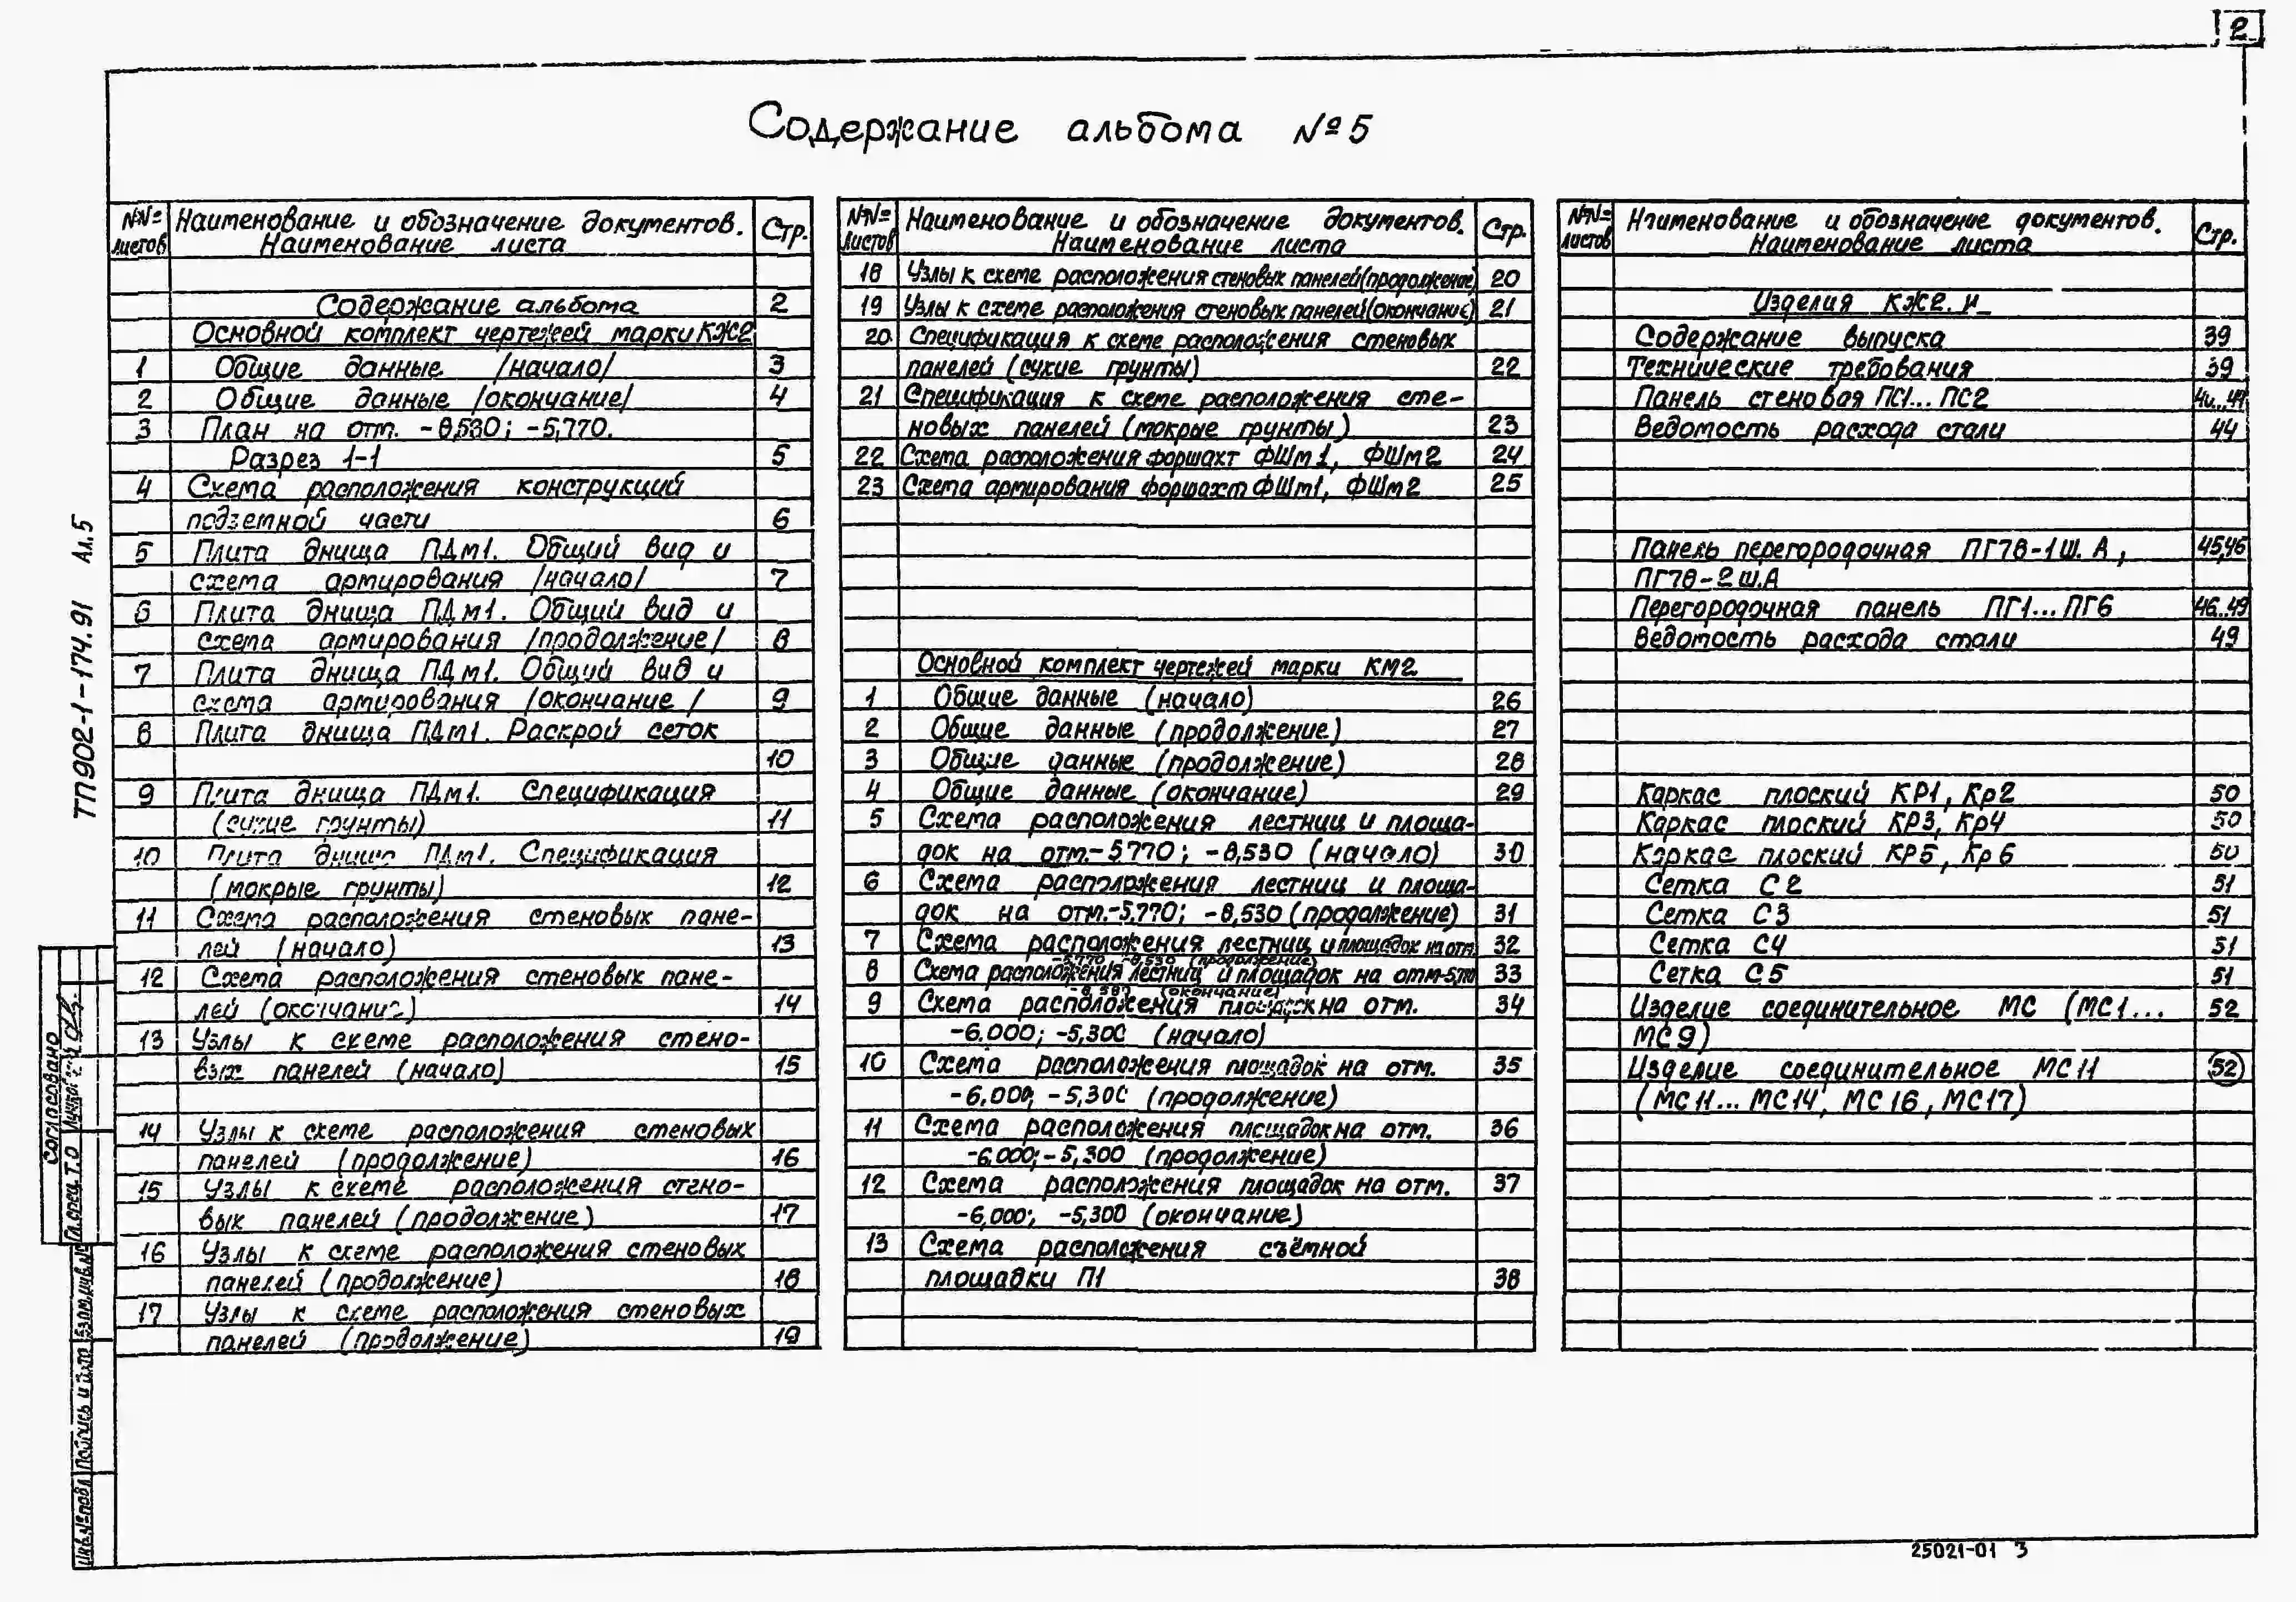 2
Содержание альбома №5
NN= листов Наименование и обозначение документов. Наименование листа Стр.
Содержание альбома 2
Основной комплект чертежей марки КЖ2
1 Общие данные /начало/ 3
2 Общие данные /окончание/ 4
3 План на отм. -8,530; -5,770.
Разрез 1-1 5
4 Схема расположения конструкций
подземной части 6
5 Плита днища ПДм1. Общий вид и
схема армирования /начало/ 7
6 Плита днища ПДм1. Общий вид и
схема армирования /продолжение/ 8
7 Плита днища ПДм1. Общий вид и
схема армирования /окончание/ 9
8 Плита днища ПДм1. Раскрой сеток
10
9 Плита днища ПДм1. Спецификация
(сухие грунты) 11
10 Плита днища ПДм1. Спецификация
(мокрые грунты) 12
11 Схема расположения стеновых пане-
лей (начало) 13
12 Схема расположения стеновых пане-
лей (окончание) 14
13 Узлы к схеме расположения стено-
вых панелей (начало) 15
14 Узлы к схеме расположения стеновых
панелей (продолжение) 16
15 Узлы к схеме расположения стено-
вых панелей (продолжение) 17
16 Узлы к схеме расположения стеновых
панелей (продолжение) 18
17 Узлы к схеме расположения стеновых
панелей (продолжение) 19
NN= листов Наименование и обозначение документов. Наименование листа Стр.
18 Узлы к схеме расположения стеновых панелей (продолжение) 20
19 Узлы к схеме расположения стеновых панелей (окончание) 21
20 Спецификация к схеме расположения стеновых
панелей (сухие грунты) 22
21 Спецификация к схеме расположения сте-
новых панелей (мокрые грунты) 23
22 Схема расположения форшахт ФШм1, ФШм2 24
23 Схема армирования форшахт ФШм1, ФШм2 25
Основной комплект чертежей марки КМ2
1 Общие данные (начало) 26
2 Общие данные (продолжение) 27
3 Общие данные (продолжение) 28
4 Общие данные (окончание) 29
5 Схема расположения лестниц и площа-
док на отм.-5770; -8,530 (начало) 30
6 Схема расположения лестниц и площа-
док на отм.-5,770; -8,530 (продолжение) 31
7 Схема расположения лестниц и площадок на отм. 32
-5,770 -8,530 (продолжение)
8 Схема расположения лестниц и площадок на отм-5,770 33
(окончание)
9 Схема расположения площадок на отм. 34
-6.000; -5,300 (начало)
10 Схема расположения площадок на отм. 35
-6.000, -5,300 (продолжение)
11 Схема расположения площадок на отм. 36
-6.000; -5,300 (продолжение)
12 Схема расположения площадок на отм. 37
-6,000; -5,300 (окончание)
13 Схема расположения съёмной
площадки П1 38
NN= листов Наименование и обозначение документов. Наименование листа Стр.
Изделия КЖ2.И
Содержание выпуска 39
Технические требования 39
Панель стеновая ПС1...ПС2 40...44
Ведомость расхода стали 44
Панель перегородочная ПГ78-1Ш.А, 45,46
ПГ78-2Ш.А
Перегородочная панель ПГ1...ПГ6 46..49
Ведомость расхода стали 49
Каркас плоский КР1, Кр2 50
Каркас плоский КР3, Кр4 50
Каркас плоский КР5, Кр6 50
Сетка С2 51
Сетка С3 51
Сетка С4 51
Сетка С5 51
Изделие соединительное МС (МС1... 52
МС9)
Изделие соединительное МС11 52
(МС11...МС14, МС16, МС17)
ТП902-1-174.91 Ал.5
Согласовано
Гл.спец.Т.О
Инв.№подл Подпись и дата Взам.инв.№
25021-01 3